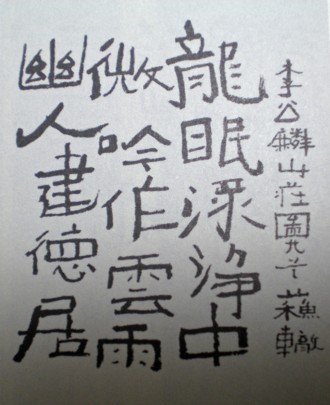 李公麟山庄圖 蘇轍
龍眠渌浄中
微吟作雲雨
幽人建德居